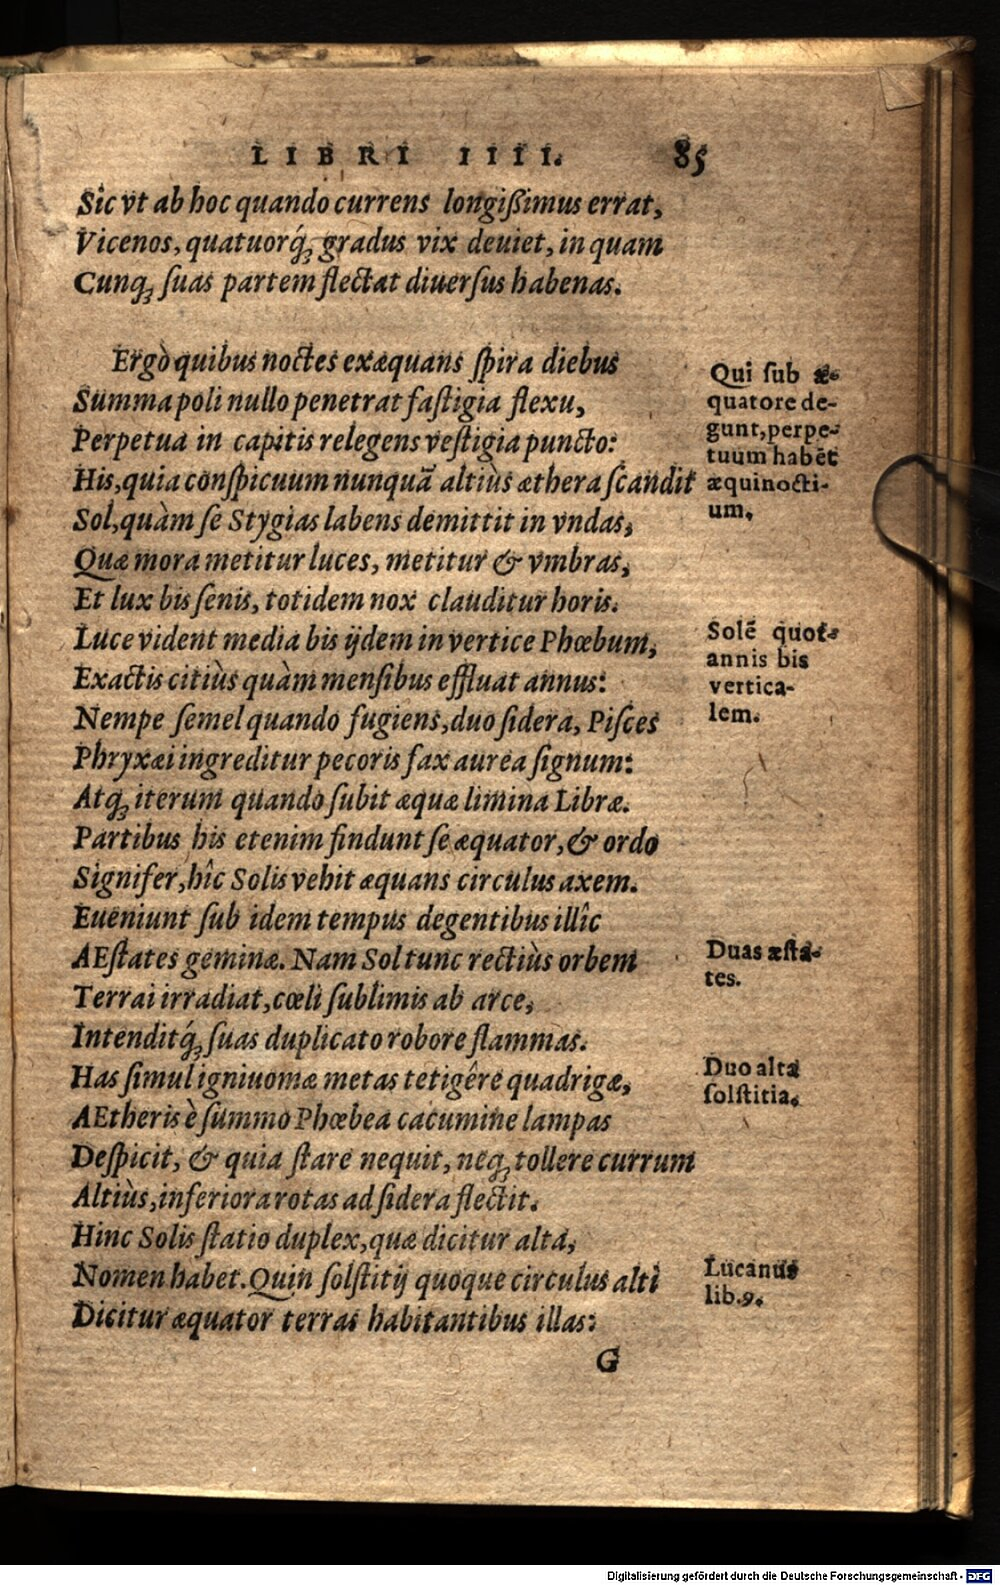 LIBRI IIII. 85
Sic vt ab hoc quando currens longißimus errat,
Vicenos, quatuorq́ꝫ gradus vix deuiet, in quam
Cunqꝫ ſuas partem flectat diuerſus habenas.
Ergò quibus noctes exæquans ſpira diebus
Summa poli nullo penetrat faſtigia flexu,
Perpetua in capitis relegens veſtigia puncto:
His, quia conſpicuum nunquā altiùs æthera ſcandit
Sol, quàm ſe Stygias labens demittit in vndas,
Quæ mora metitur luces, metitur & vmbras,
Et lux bis ſenis, totidem nox clauditur horis.
Luce vident media bis ijdem in vertice Phœbum,
Exactis citiùs quàm menſibus effluat annus:
Nempe ſemel quando fugiens, duo ſidera, Piſces
Phryxæi ingreditur pecoris fax aurea ſignum:
Atqꝫ iterum quando ſubit æquæ limina Libræ.
Partibus his etenim findunt ſe æquator, & ordo
Signifer, hîc Solis vehit æquans circulus axem.
Eueniunt ſub idem tempus degentibus illîc
AEſtates geminæ. Nam Sol tunc rectiùs orbem
Terrai irradiat, cœli ſublimis ab arce,
Intenditq́ꝫ ſuas duplicato robore flammas.
Has ſimul igniuomæ metas tetigêre quadrigæ,
AEtheris è ſummo Phœbea cacumine lampas
Deſpicit, & quia ſtare nequit, neqꝫ tollere currum
Altiùs, inferiora rotas ad ſidera flectit.
Hinc Solis ſtatio duplex, quæ dicitur alta,
Nomen habet. Quin ſolſtitij quoque circulus alti
Dicitur æquator terras habitantibus illas:
G
Qui ſub æ-
quatore de-
gunt, perpe-
tuum habēt
æquinocti-
um.
Solē quot-
annis bis
vertica-
lem.
Duas æſta-
tes.
Duo alta
ſolſtitia.
Lucanus
lib.9.
Digitalisierung gefördert durch die Deutsche Forschungsgemeinschaft - DFG